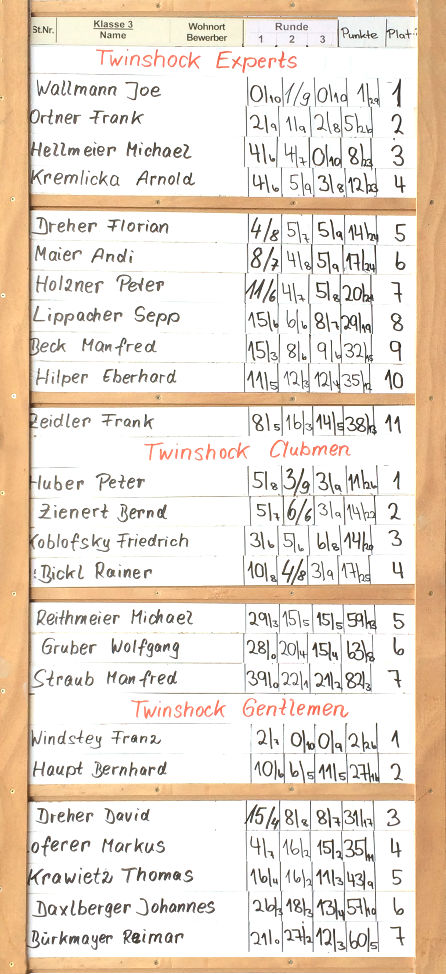 St.Nr. Klasse 3 Name Wohnort Bewerber Runde 1 . 2 . 3 Punkte Plat.
Twinshock Experts
Wallmann Joe 0/10 1/9 0/10 1/29 1
Ortner Frank 2/9 1/9 2/8 5/26 2
Hellmeier Michael 4/6 4/7 0/10 8/23 3
Kremlicka Arnold 4/6 5/9 3/8 12/23 4
Dreher Florian 4/8 5/7 5/9 14/24 5
Maier Andi 8/7 4/8 5/9 17/24 6
Holzner Peter 11/6 4/7 5/8 20/21 7
Lippacher Sepp 15/6 6/6 8/7 29/19 8
Beck Manfred 15/3 8/6 9/6 32/15 9
Hilper Eberhard 11/5 12/3 12/4 35/12 10
Zeidler Frank 8/5 16/3 14/5 38/13 11
Twinshock Clubmen
Huber Peter 5/8 3/9 3/9 11/26 1
Zienert Bernd 5/7 6/6 3/9 14/22 2
Koblofsky Friedrich 3/6 5/6 6/8 14/20 3
Bickl Rainer 10/8 4/8 3/9 17/25 4
Reithmeier Michael 29/3 15/5 15/5 59/13 5
Gruber Wolfgang 28/0 20/4 15/4 63/8 6
Straub Manfred 39/0 22/1 21/2 82/3 7
Twinshock Gentlemen
Windstey Franz 2/7 0/10 0/9 2/26 1
Haupt Bernhard 10/6 6/5 11/5 27/16 2
Dreher David 15/4 8/8 8/7 31/17 3
oferer Markus 4/7 16/2 15/2 35/11 4
Krawietz Thomas 16/4 16/2 11/3 43/9 5
Daxlberger Johannes 26/3 18/3 13/4 57/10 6
Bürkmayer Raimar 21/0 27/2 12/3 60/5 7